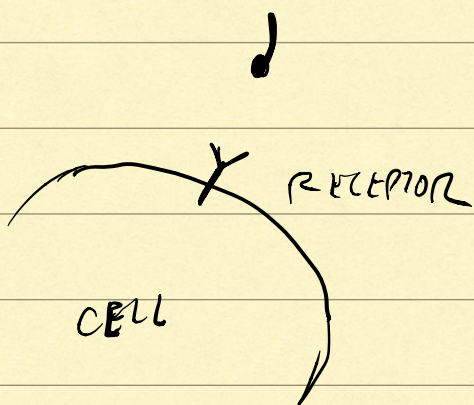 RECEPTOR
CELL